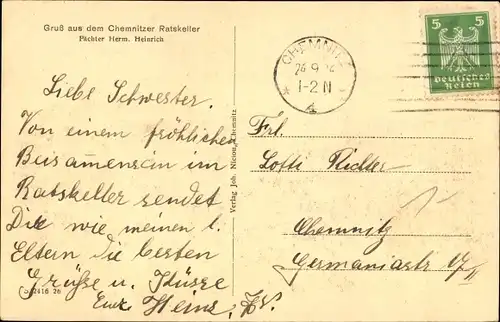 Gruß aus dem Chemnitzer Ratskeller
Pächter Herm. Heinrich
CHEMNITZ
26.9.
1-2 N
5 5
Deutsches
Reich
Liebe Schwester.
Von einem fröhlichen
Beisammensein im
Ratskeller sendet
Dir wie meinen l.
Eltern die besten
Grüße u. Küsse
Euer Heinz
Verlag Joh. Nicou, Chemnitz
Frl.
Lotti Richter
Chemnitz
Germaniastr.